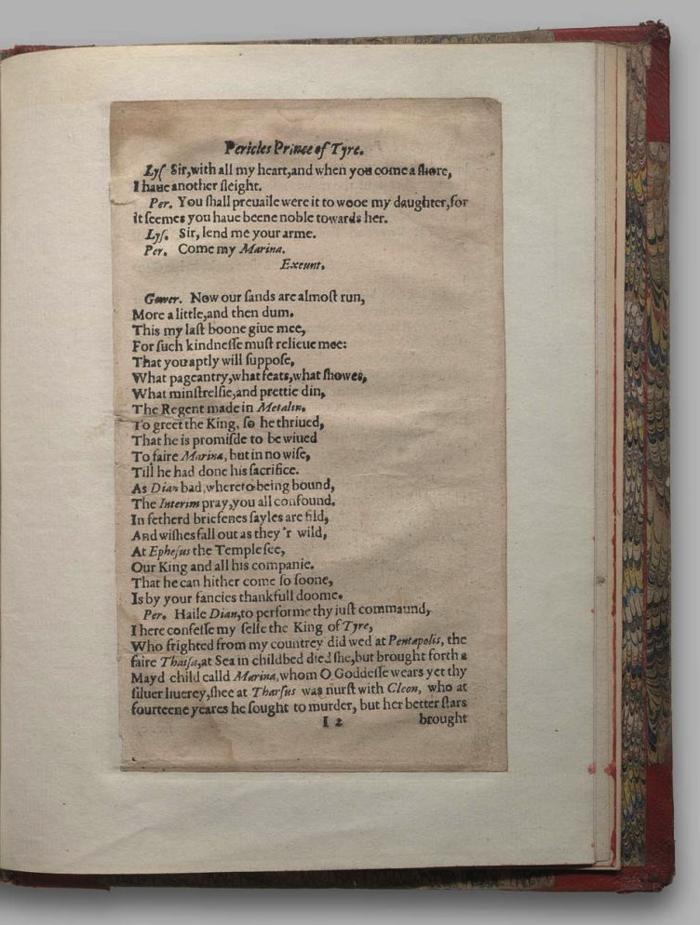 Pericles Prince of Tyre.
Lyſ Sir,with all my heart,and when you come a ſhore,
I haue another ſleight.
Per. You ſhall preuaile were it to wooe my daughter,for
it ſeemes you haue beene noble towards her.
Lyſ. Sir, lend me your arme.
Per. Come my Marina.
Exeunt.
Gower. Now our ſands are almoſt run,
More a little,and then dum.
This my laſt boone giue mee,
For ſuch kindneſſe muſt relieue mee:
That you aptly will ſuppoſe,
What pageantry,what feats,what ſhowes,
What minſtrelſie,and prettie din,
The Regent made in Metalin,
To greet the King, ſo he thriued,
That he is promiſde to be wiued
To faire Marina, but in no wiſe,
Till he had done his ſacrifice.
As Dian bad,whereto being bound,
The Interim pray,you all confound.
In fetherd briefenes ſayles are fild,
And wiſhes fall out as they'r wild,
At Epheſus the Temple ſee,
Our King and all his companie.
That he can hither come ſo ſoone,
Is by your fancies thankfull doome.
Per. Haile Dian,to performe thy iuſt commaund,
I here confeſſe my ſelfe the King of Tyre,
Who frighted from my countrey did wed at Pentapolis, the
faire Thaiſa,at Sea in childbed died ſhe,but brought forth a
Mayd child calld Marina,whom O Goddeſſe wears yet thy
ſiluer liuerey,ſhee at Tharſus was nurſt with Cleon, who at
fourteene yeares he ſought to murder, but her better ſtars
I 2 brought